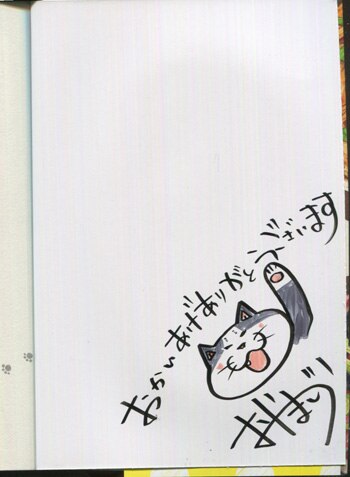 おかいあげありがとうございます